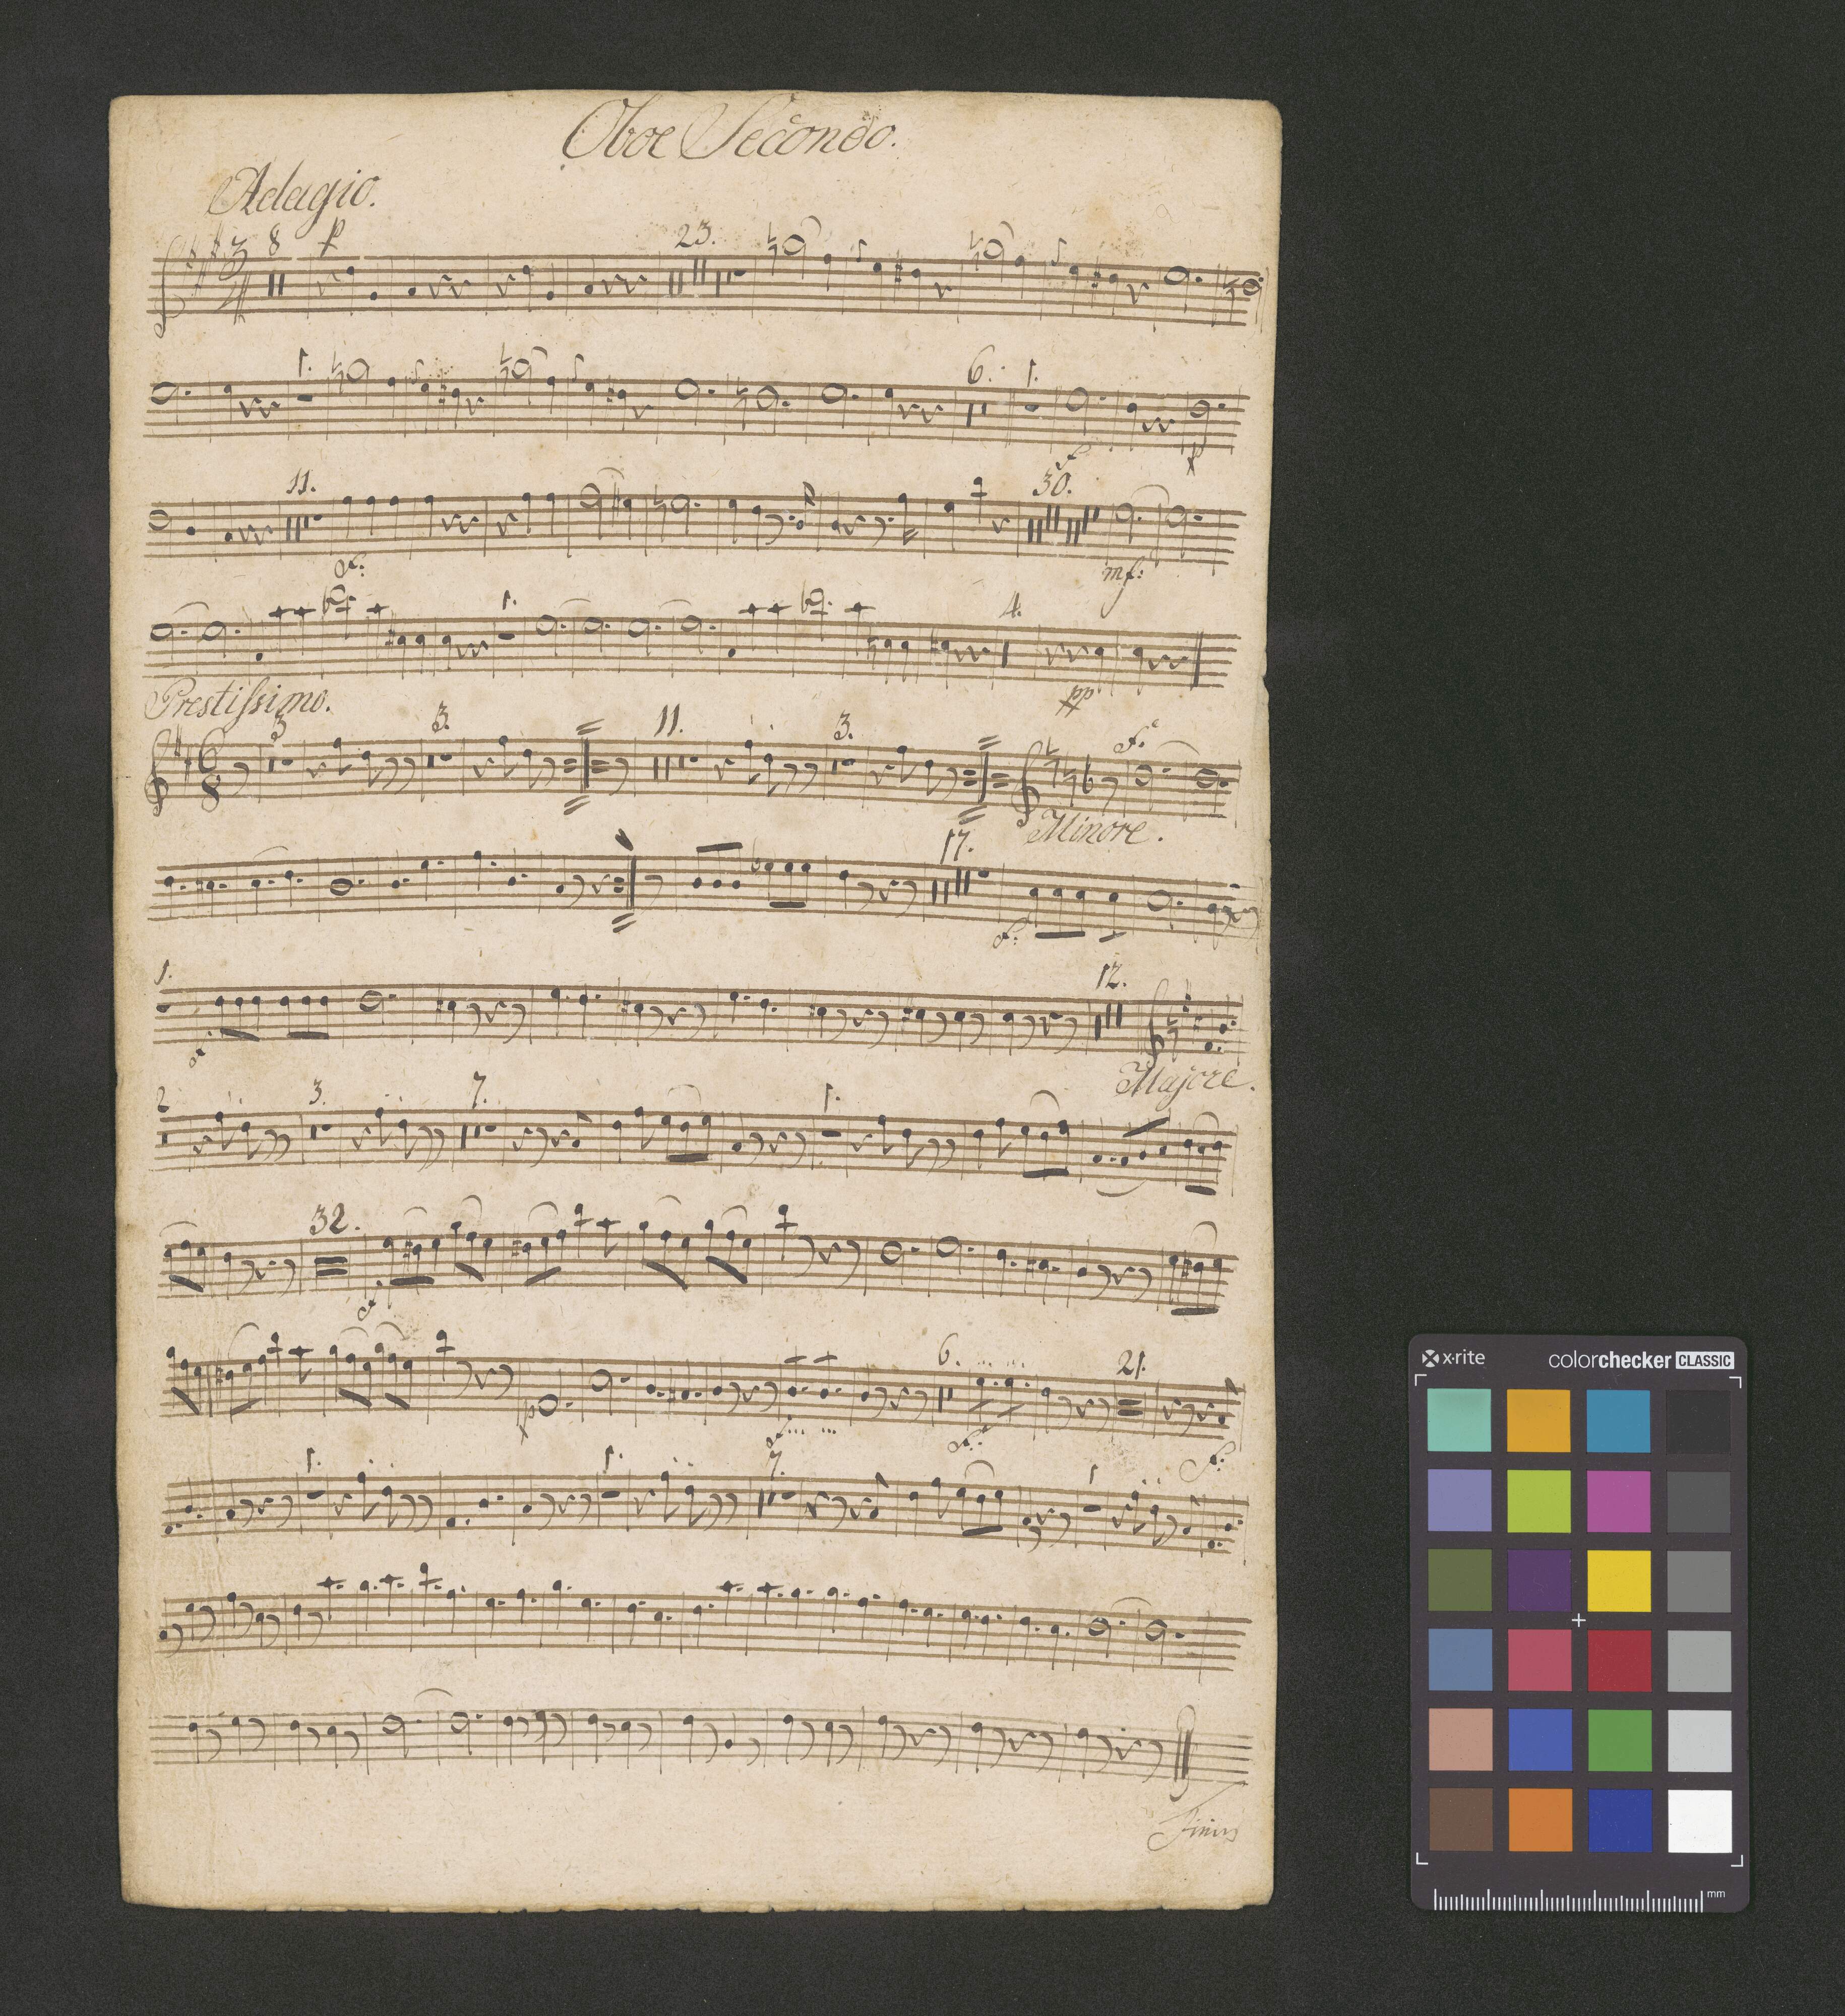 Oboe Secondo.
Adagio.
3 4 8 p 23.
1. 6. 1. f p
11. f: 30. mf:
1. 4. pp
Prestiſsimo.
6 8 3 3. 11. 3. f:
Minore.
17. f:
1. f 12.
Majore.
2 3. 7. 1.
32. f
p f 6. f: 21. f:
1. 1. 7. 1
Finis
x·rite colorchecker CLASSIC
mm